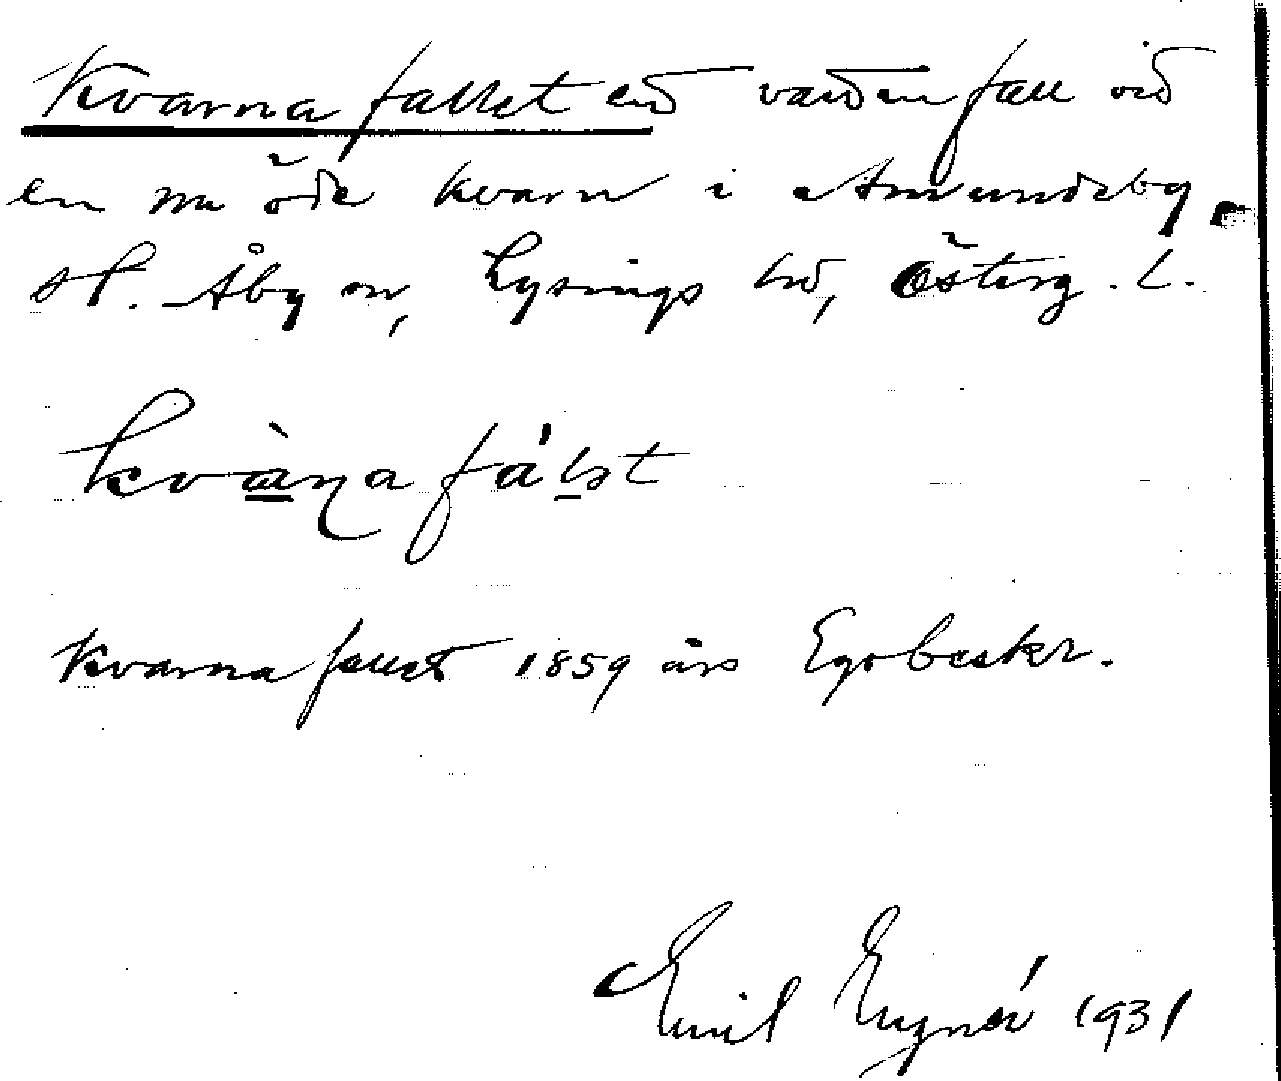 Kvarnafallet ett vattenfall vid
en nu öde kvarn i Amundeby
st. Åby sn, Lysings hd, Österg. L.
kvàṇafálst
Kvarnafallet 1859 års Egobeskr.
Emil 1931